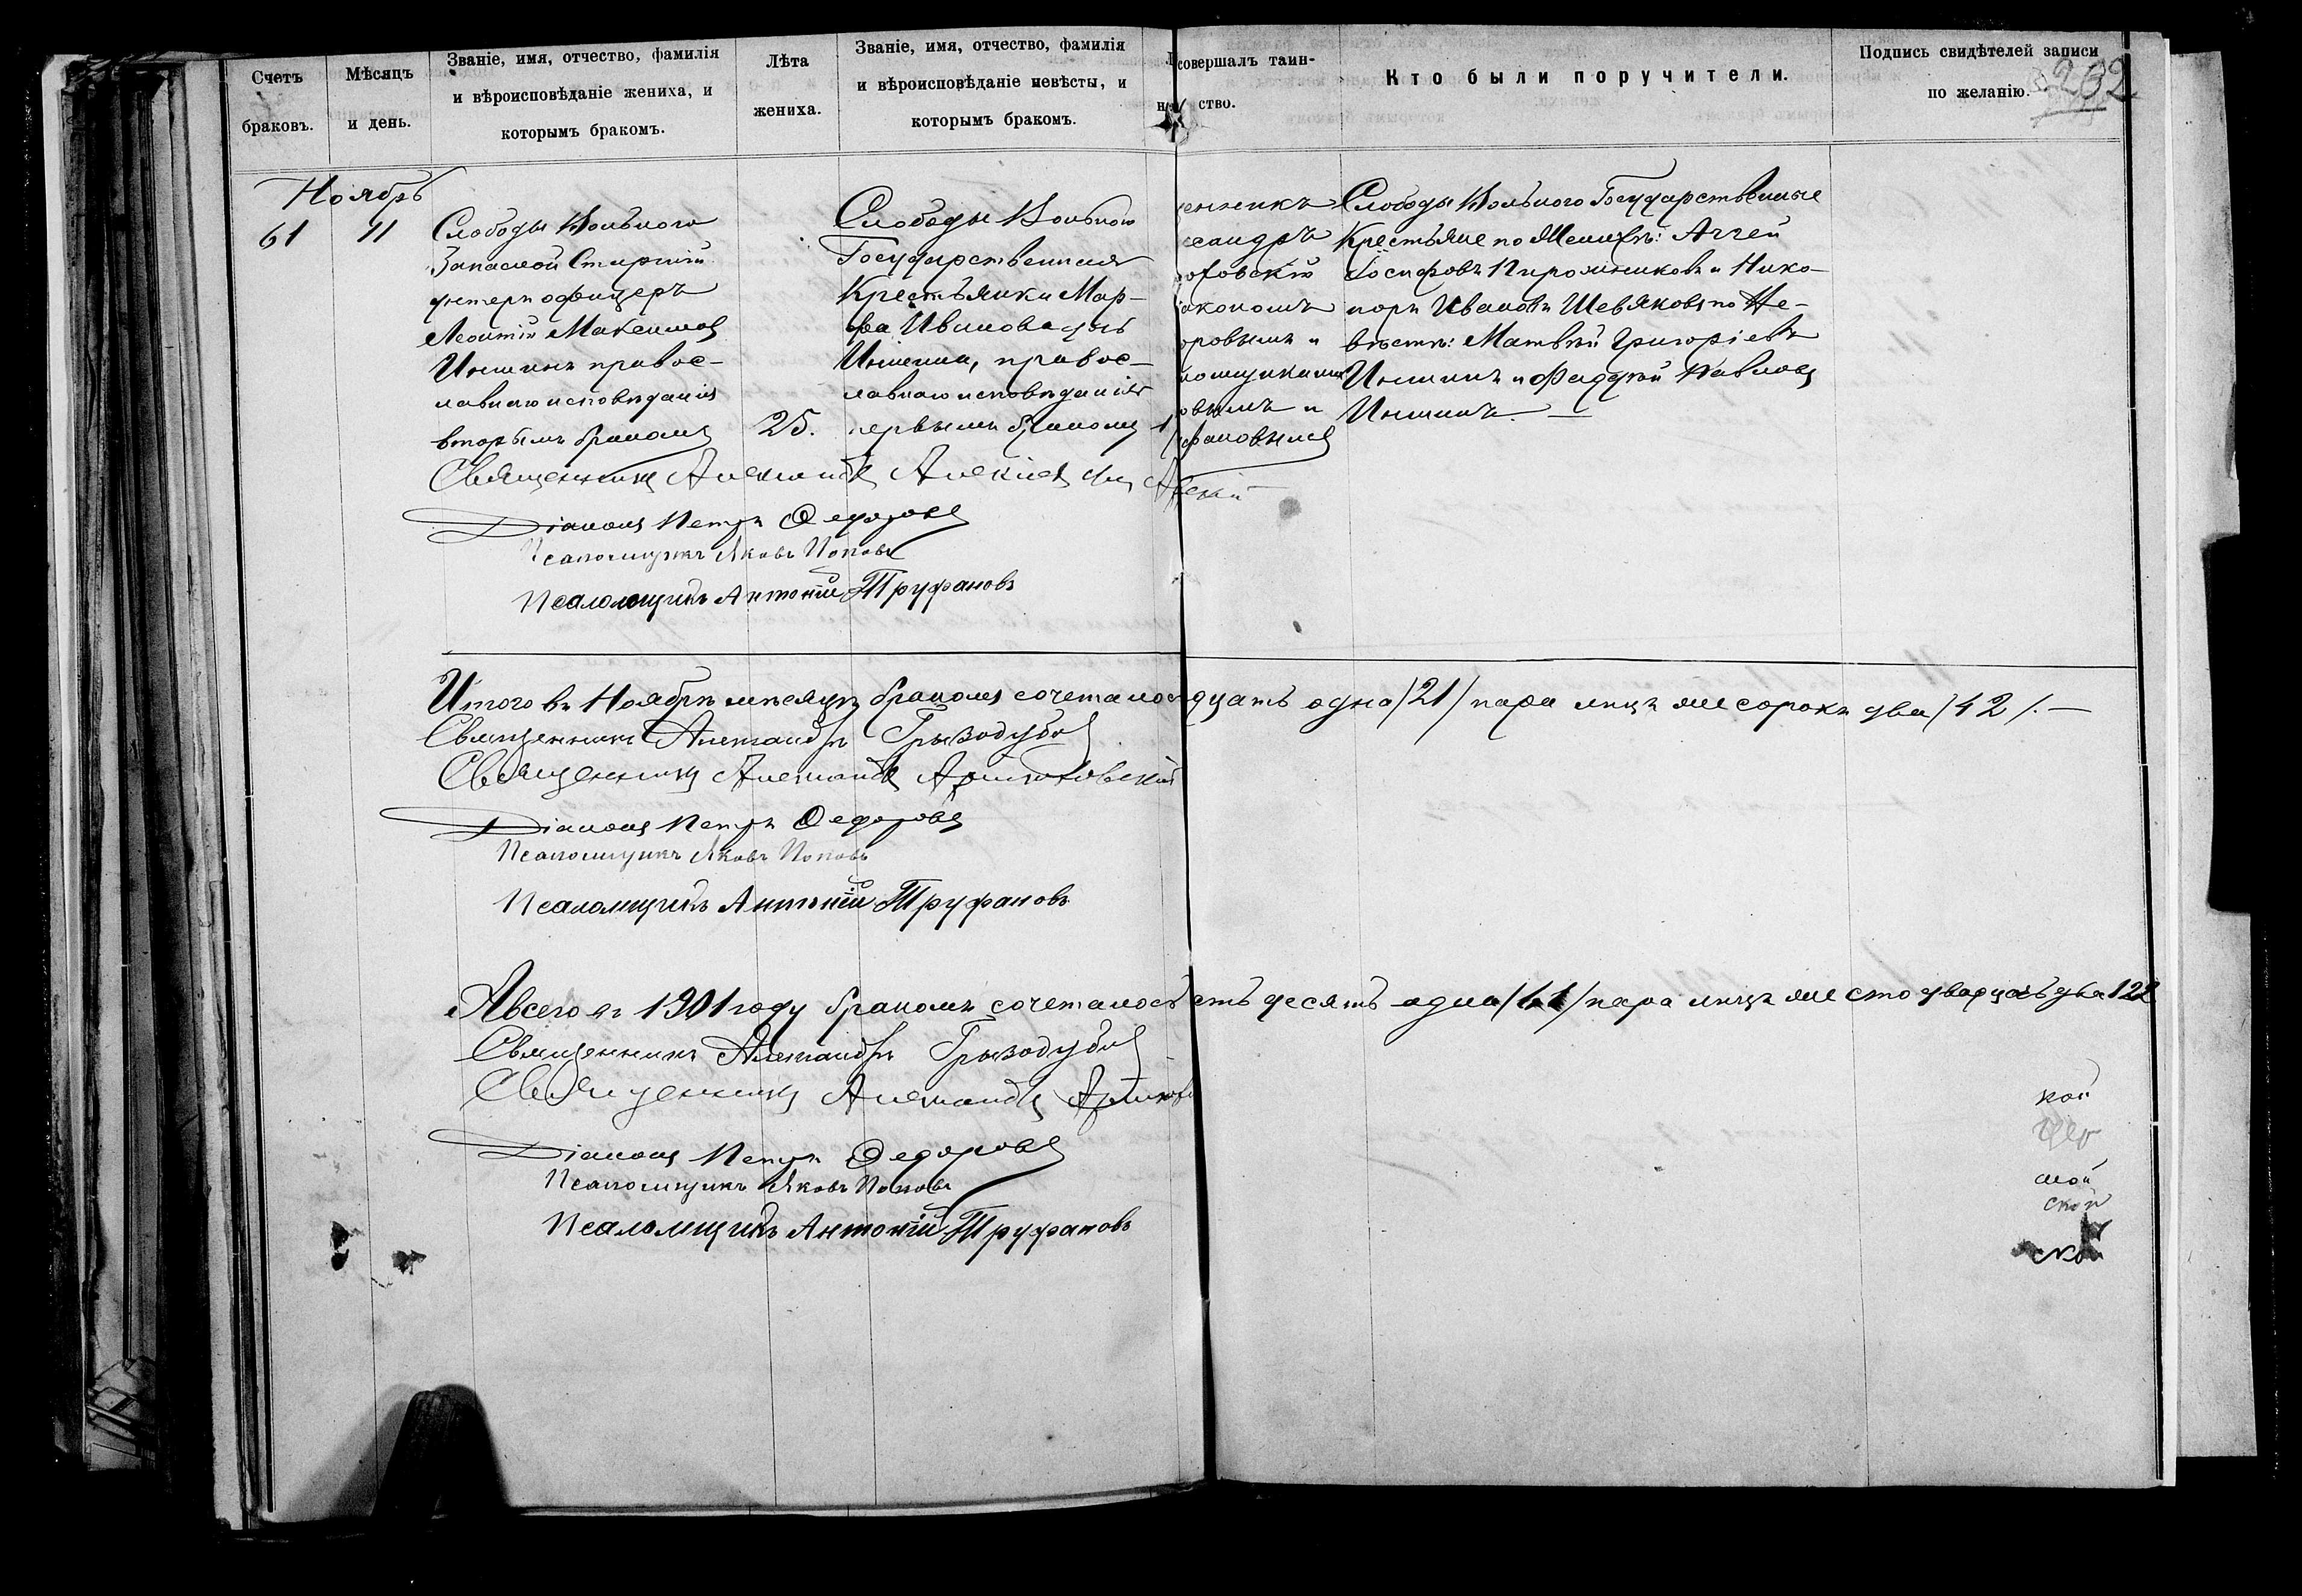 Счетъ
браковъ.
Мѣсяцъ
и день.
Званіе, имя, отчество, фамилія
и вѣроисповѣданіе жениха, и
которымъ бракомъ.
Лѣта
жениха.
Званіе, имя, отчество, фамилія
и вѣроисповѣданіе невѣсты, и
которымъ бракомъ.
совершалъ таин-
ство.
Кто были поручители.
Подпись свидѣтелей записи
по желанію.
202
Ноябрь
61
11
Слободы Вольного
Запасной Старшій
унтеръ офицеръ
Леонтій Максимовъ
Иншинъ правос-
лавнаго исповѣданія
вторымъ бракомъ
25.
Слободы Вольного
Государственная
Крестьянка Мар-
фа Иванова дочь
Иншина, правос-
лавнаго исповѣданія
первымъ бракомъ
енникъ
сандръ
ховскій
акономъ
оровымъ и
омщиками
овымъ и
фановымъ
Слободы Вольного Государственные
Крестьяне по Женихѣ: Аггей
Іосифовъ Пирожниковъ и Ника-
норъ Ивановъ Шевяковъ по Не-
вѣстѣ: Матвѣй Григоріевъ
Иншинъ и Фаддей Павловъ
Иншинъ.
Священникъ Александръ
Діаконъ Петръ Федоровъ
Псаломщикъ Яковъ Поповъ
Псаломщикъ Антоній Труфановъ
Итого въ Ноябрѣ мѣсяцѣ бракомъ сочеталось дцать одна /21/ пара лицъ же сорокъ два /42/. —
Священникъ Александръ Грызодубовъ
Священникъ Александръ
Діаконъ Петръ Федоровъ
Псаломщикъ Яковъ Поповъ
Псаломщикъ Антоній Труфановъ
А всего въ 1901 году бракомъ сочеталось сть десятъ одна /61/ пара лицъ же сто двадцать два 122
Священникъ Александръ Грызодубовъ
Священникъ Александръ
Діаконъ Петръ Федоровъ
Псаломщикъ Яковъ Поповъ
Псаломщикъ Антоній Труфановъ
кой
ской
ской